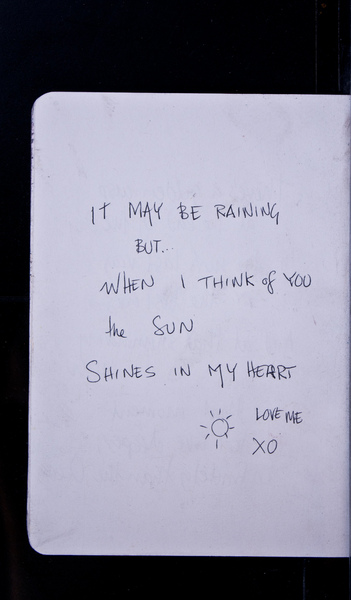 IT MAY BE RAINING
BUT...
WHEN I THINK of YOU
the SUN
SHINES IN MY HEART
LOVE ME
XO